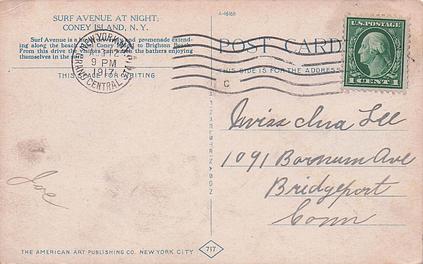 SURF AVENUE AT NIGHT,
CONEY ISLAND, N. Y.
Surf Avenue is a
and promenade extend-
ing along the beach
Coney
to Brighton Beach.
From this drive the visitors can
the bathers enjoying
themselves in the
THIS SPACE FOR WRITING
NEW YORK, N.Y.
9 PM
1917
GRAND CENTRAL STA.
A-16168
POST CARD
THIS SIDE IS FOR THE ADDRESS
C
U.S. POSTAGE
1 CENT 1
Miss Ina Lee
1091 Barnum Ave
Bridgeport
Conn
Joe
THE AMERICAN ART PUBLISHING CO. NEW YORK CITY
717